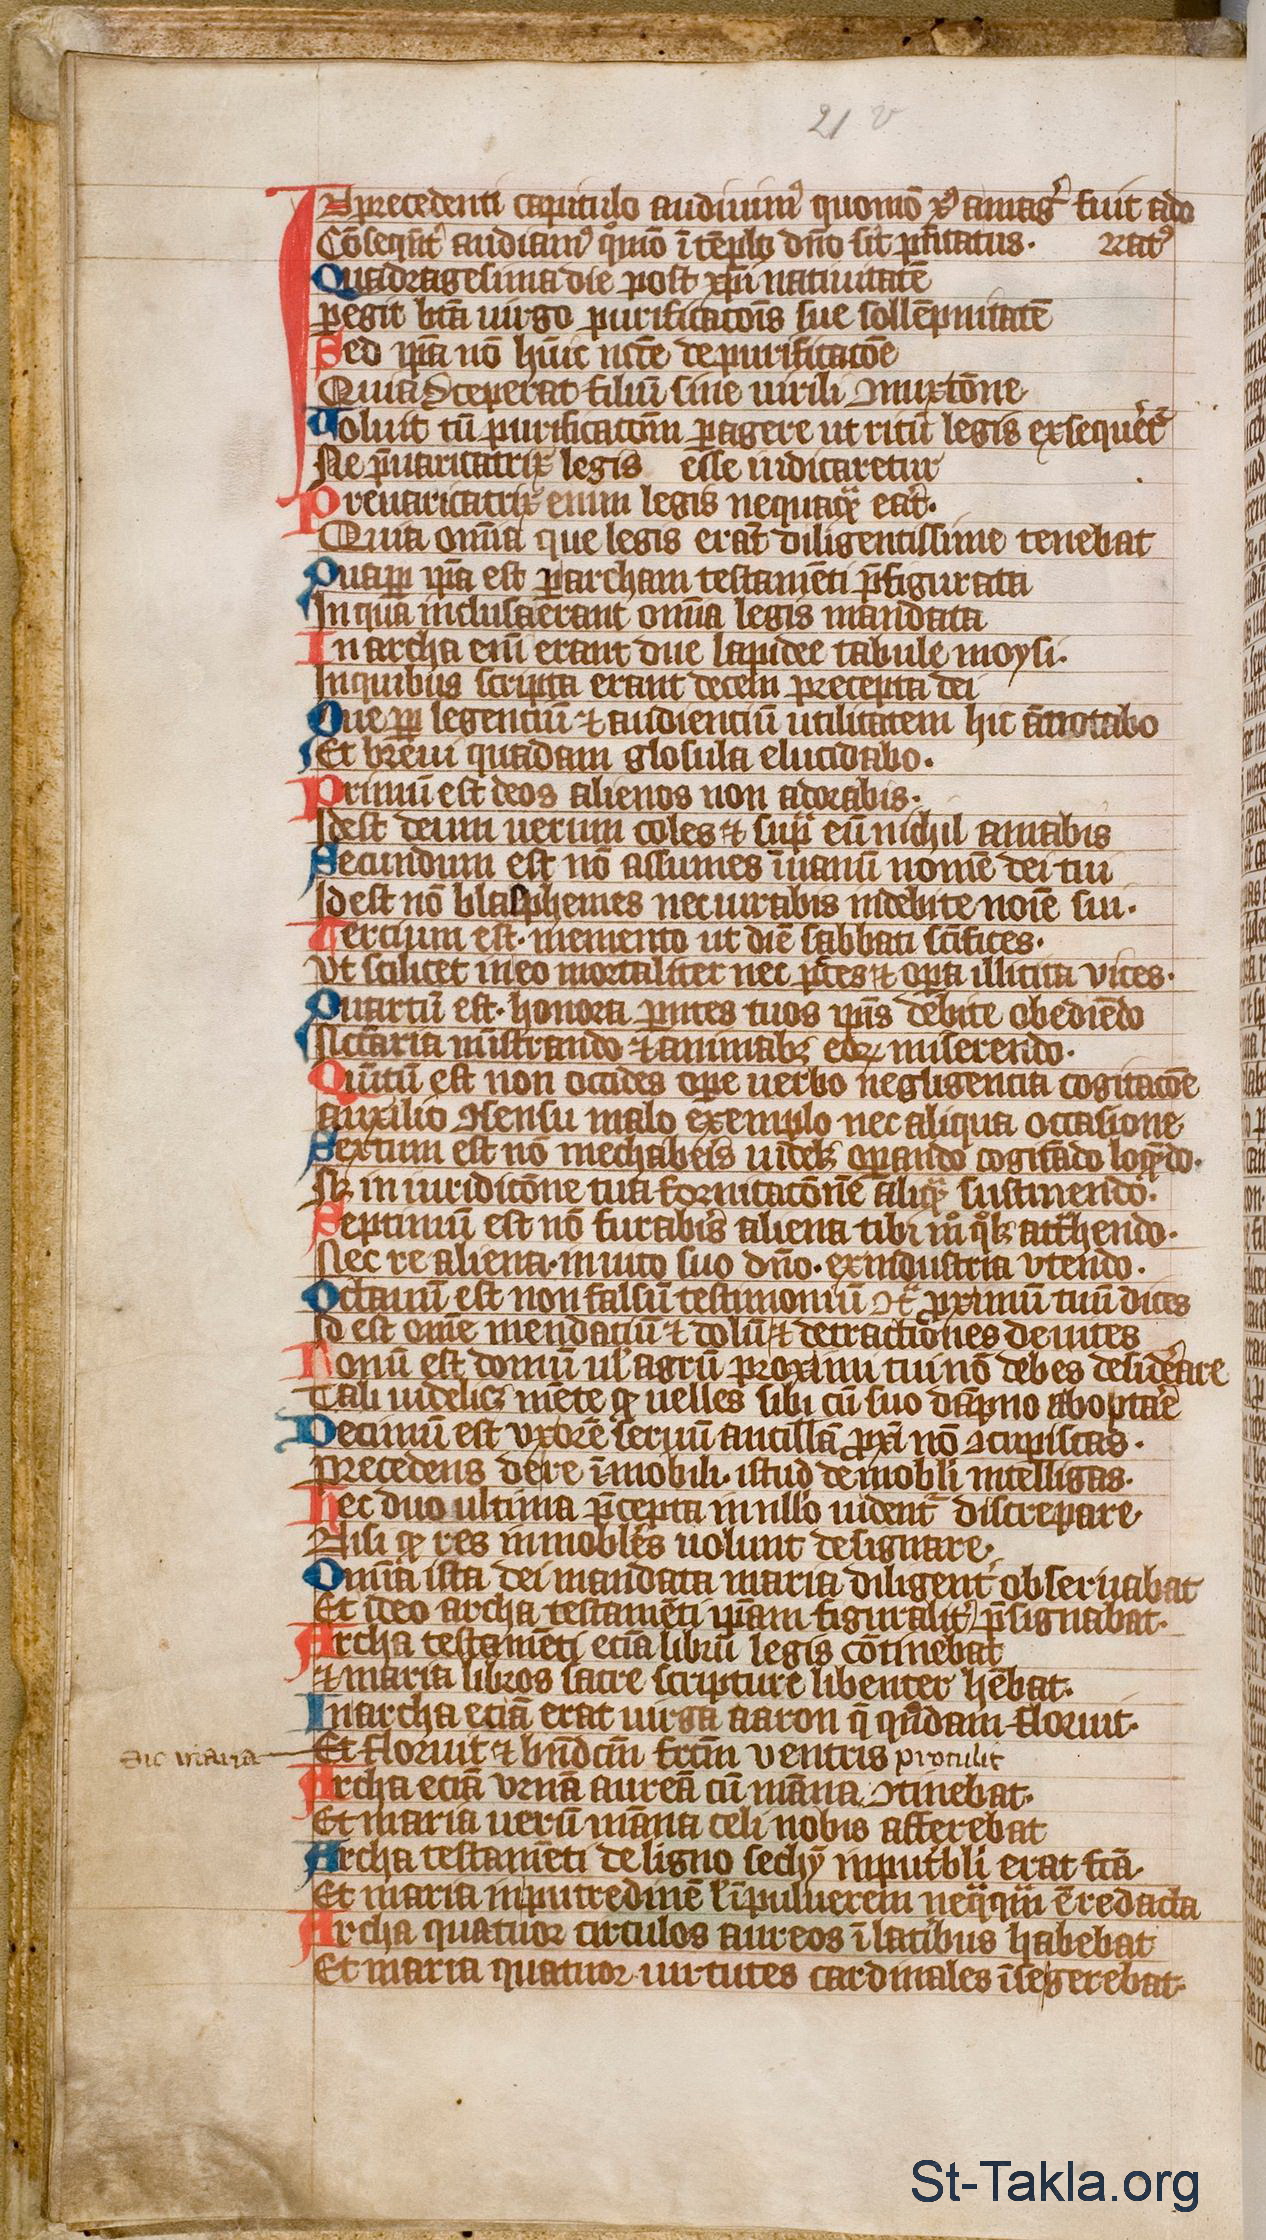 21 v
In precedenti capitulo audiuim⁹ quomō xp̄s a mag᷒ fuit ado
Cōseqn̄t᷒ audiam⁹ qͦmō ī tēplo dn̄o sit p̄sētatus. rat⁹
Quadragesima die post xp̄i natiuitatē
pegit bt̄a uirgo purificacōis sue sollēpnitatē
Sed ip̄a nō h̄uit nccē de purificacōe
Quia ꝯceperat filiū sine uirili ꝯmixtōne
Uoluit tn̄ purificacōm pagere ut ritū legis exsequeret᷒
Ne p̄uaricatrix legis esse iudicaretur
Preuaricatrix enim legis nequaqͣ erat.
Quia omīa que legis erāt diligentissime tenebat
Quap̱p̱ ip̄a est ꝑ archam testamēti p̄figurata
In qua inclusa erant omīa legis mandata
In archa enī erant due lapidee tabule moysi.
In quibus scripta erant decem precepta dei
Que ꝓpt̄ legenciū ⁊ audienciū utilitatem hic ānotabo
Et breui quadam glosula elucidabo.
Primū est deos alienos non adorabis.
Idest deum uerum coles ⁊ supͣ eū nichil amabis
Secundum est nō assumes ī uanū nomē dei tui
Idest nō blasphemes nec iurabis indebite noīe sui.
Tercium est. memento ut diē sabbati sc̄ifices.
Vt scilicet in eo mortaliter nec pecces ⁊ oꝑa illicita vites.
Quartū est. honora ꝑentes tuos ip̄is debite obediēdo
Necc̄aria mīstrando ⁊ animabꝫ eoꝝ miserendo.
Quītū est non occides oꝑe uerbo negligencia cogitacōe
auxilio ꝯsensu malo exemplo nec aliqua occasione
Sextum est nō mechaberis uidelꝫ oꝑando cogitādo loqͣdo.
Sꝫ in iuridicōne tua fornicacōnē aliqͣ sustinendo.
Septimū est nō furabis aliena tibi mͦ qͦlꝫ att̄hendo.
Nec re aliena. inuito suo dn̄o. ex industria vtendo.
Octauū est non falsū testimoniū ꝯtͣ ꝓximū tuū dices
Id est om̄e mendaciū ⁊ dolū ⁊ detractiōnes deuites
Nonū est domū ul᷒ agrū proximi tui nō debes desid᷒are
Tali uidelicꝫ mēte ꝙ uelles sibi cū suo dāpno ab optāē
Decimū est vxorē seruū ancillā ꝓxī nō ꝯcupiscas.
precedens de re īmobili. istud de mobl̄i intelligas.
Hec duo ultima p̄cepta in nullo uident᷒ discrepare.
Nisi ꝙ res inmobl̄es uolunt designare.
Omīa ista dei mandata maria diligent᷒ obseruabat
Et ideo archa testamēti ip̄am figuralit᷒ p̄signabat.
Archa testamēti eciā librū legis cōtinebat
⁊ maria libros sacre scripture libenter hēbat.
In archa eciā erat uirga aaron q̄ qͦndam floruit.
Sic maria Et floruit ⁊ bn̄dcm̄ frc̄m ventris protulit
Archa eciā vrnā aureā cū māna ꝯtinebat.
Et maria uerū māna celi nobis afferebat
Archa testamēti de ligno sechȳ inputbl̄i erat fc̄a.
Et maria in putredinē l᷒ ī puluerem neqͣqͣm ē redacta
Archa quatuor circulos aureos ī latibus habebat
Et maria quatuor uirtutes cardinales ī se gerebat.
St-Takla.org